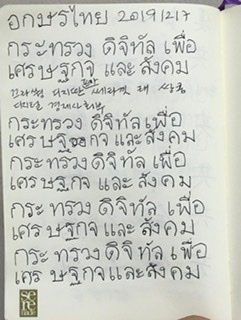 อกษรไทย 2019/12/7
กระทรวง ดิจิทัล เพื่อ
เศรษฐกจู และ สังคม
กระทรวง ดิจิทัล เพื่อ
เศรษฐกจ และ สังคม
กระทรวง ดิจิทัล เพื่อ
เศรษฐกจ และ สังคม
กระ ทรวง ดิจิทัล เพื่อ
เศร ษฐกจ และ สังคม
กระ ทรวง ดิจิ ทัล เพื่อ
เศร ษฐกจ และ สังคม
serenade